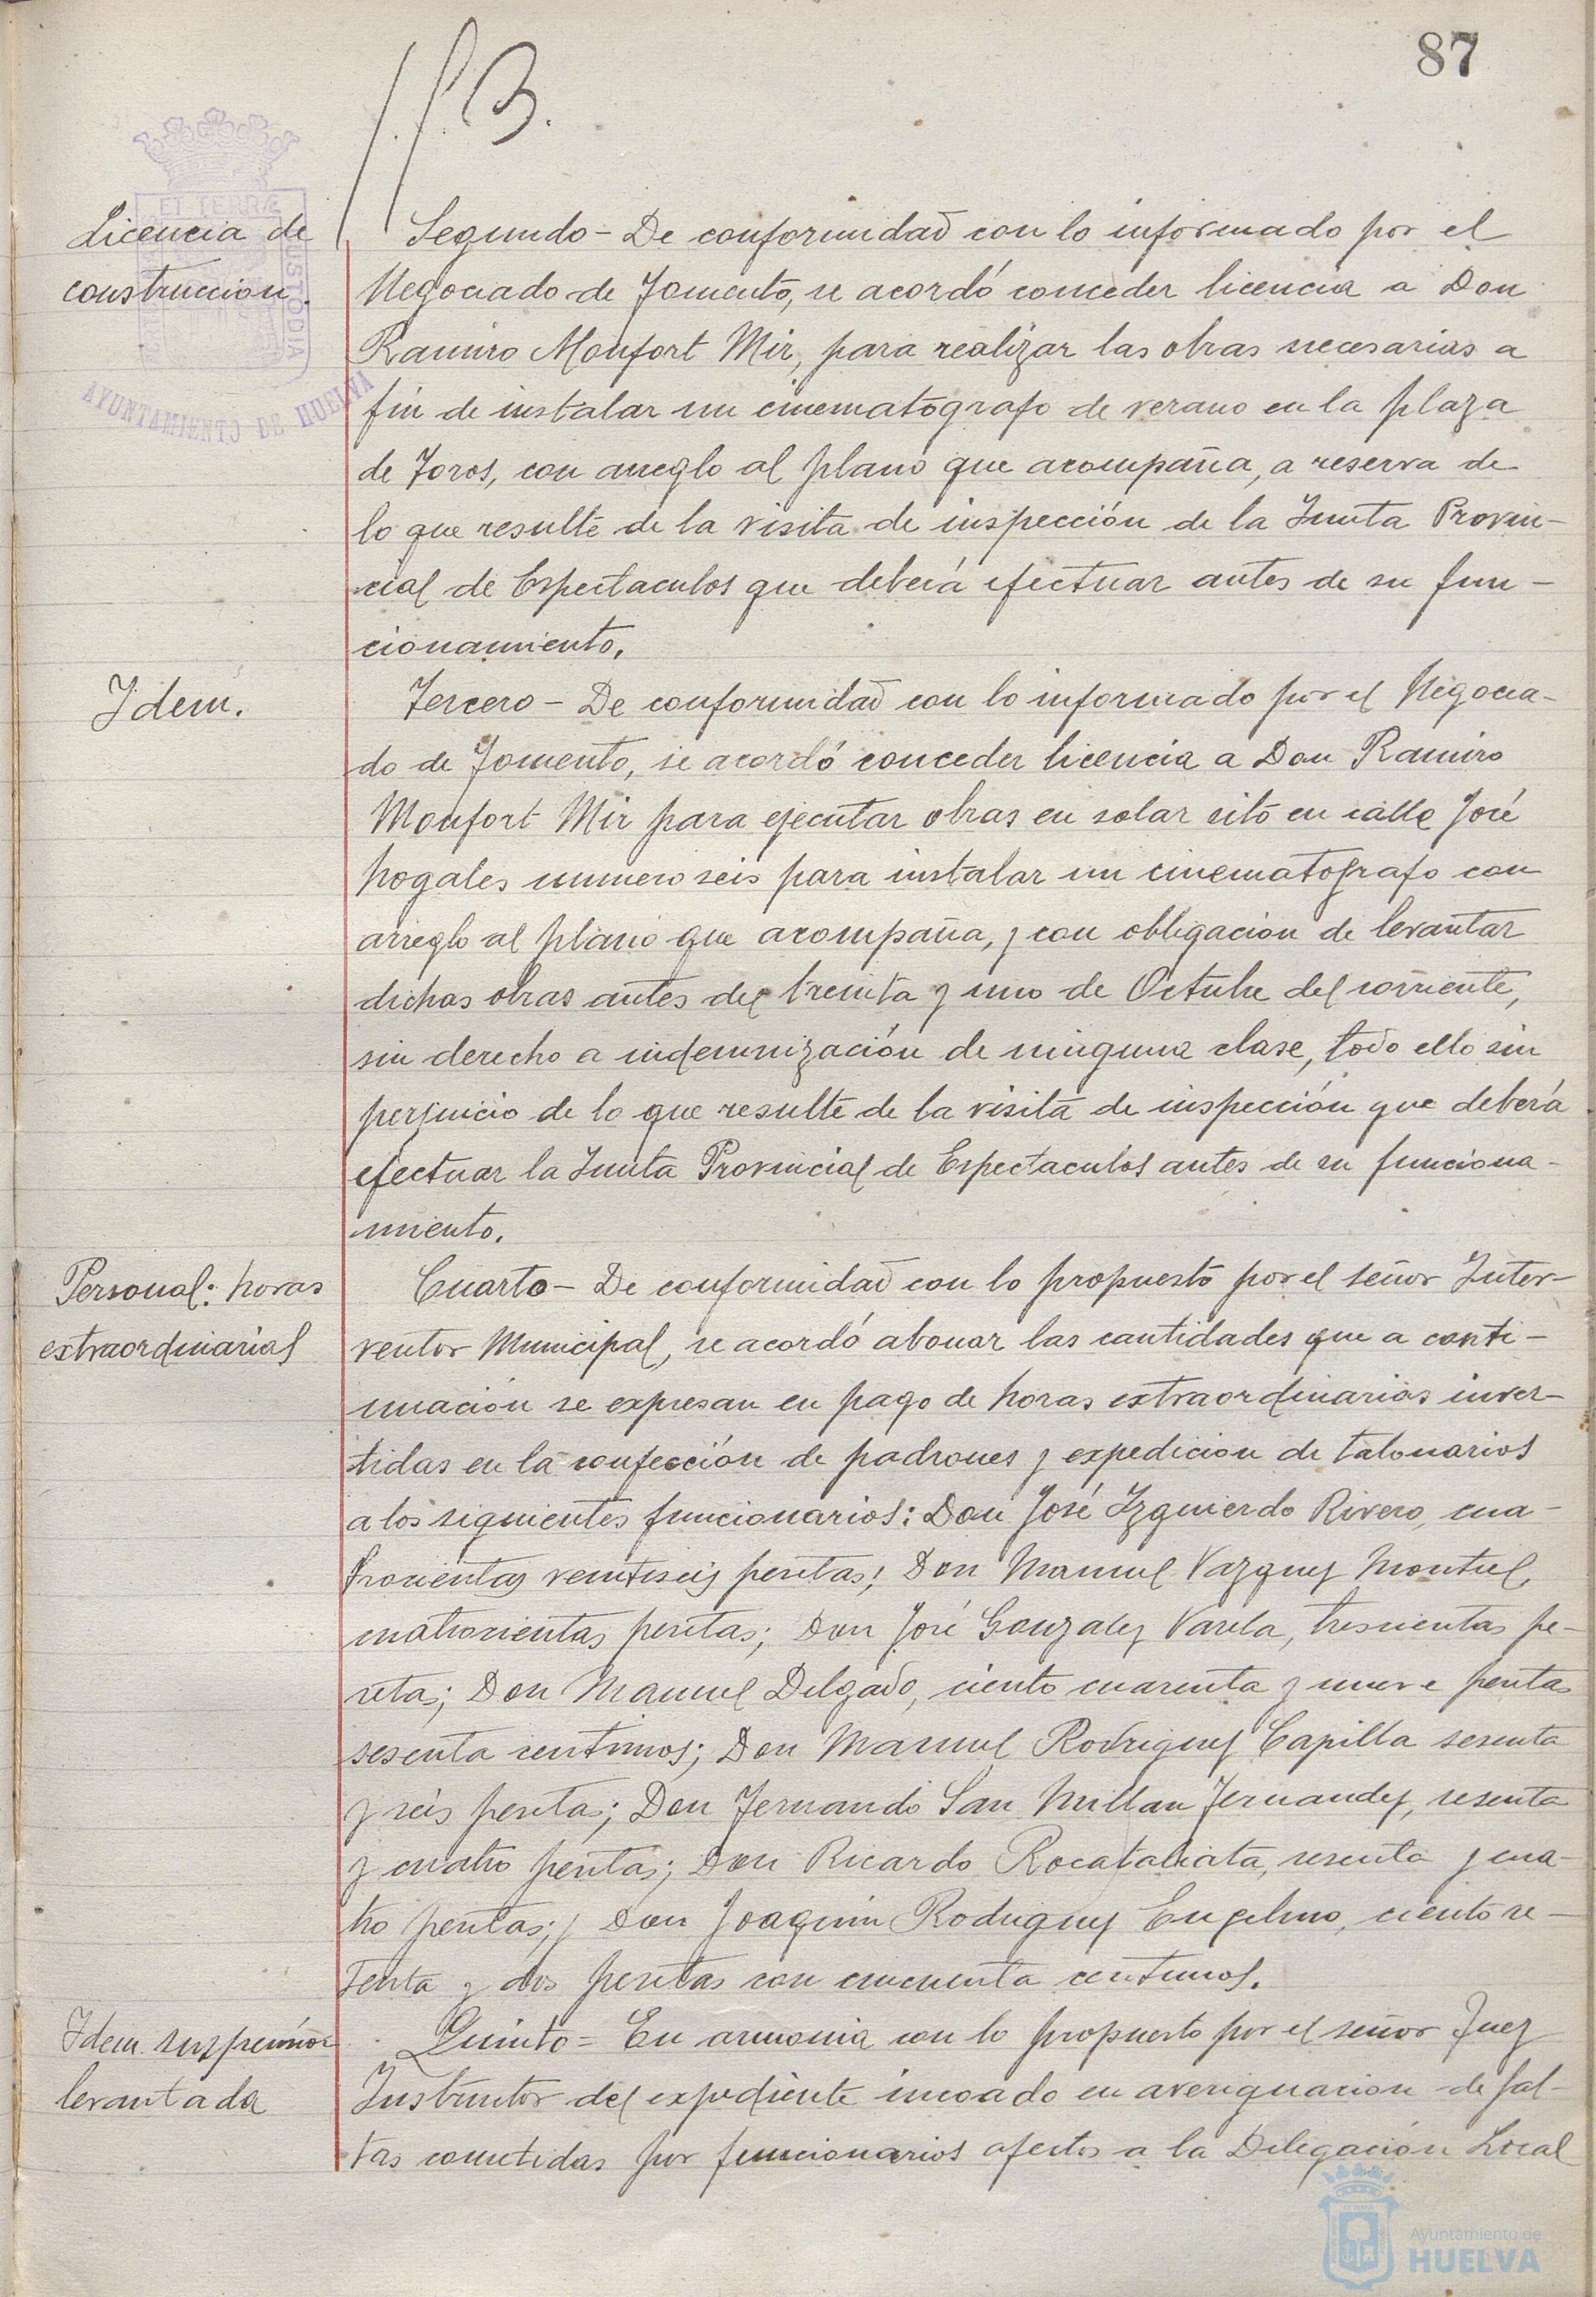 87
Licencia de
construccion.
ET TERRÆ
CUSTODIA
AYUNTAMIENTO DE HUELVA
Segundo - De conformidad con lo informado por el
Negociado de Fomento, se acordó conceder licencia a Don
Ramiro Monfort Mir, para realizar las obras necesarias a
fin de instalar un cinematógrafo de verano en la plaza
de Toros, con arreglo al plano que acompaña, a reserva de
lo que resulte de la visita de inspección de la Junta Provin-
cial de Espectaculos que deberá efectuar antes de su fun-
cionamiento.
Idem.
Tercero - De conformidad con lo informado por el Negocia-
do de Fomento, se acordó conceder licencia a Don Ramiro
Monfort Mir para ejecutar obras en solar sito en calle José
Nogales numero seis para instalar un cinematografo con
arreglo al plano que acompaña, y con obligacion de levantar
dichas obras antes del treinta y uno de Octubre del corriente,
sin derecho a indemnización de ninguna clase, todo ello sin
perjuicio de lo que resulte de la visita de inspección que deberá
efectuar la Junta Provincial de Espectaculos antes de su funciona-
miento.
Personal: horas
extraordinarias
Cuarto - De conformidad con lo propuesto por el señor Inter-
ventor Municipal, se acordó abonar las cantidades que a conti-
nuación se expresan en pago de horas extraordinarias inver-
tidas en la confección de padrones y expedicion de talonarios
a los siguientes funcionarios: Don José Izquierdo Rivero, cua-
trocientas veintiseis pesetas; Don Manuel Vazquez Montiel,
cuatrocientas pesetas; Don José Gonzalez Varela, trescientas pe-
setas; Don Manuel Delgado, ciento cuarenta y nueve pesetas
sesenta centimos; Don Manuel Rodriguez Capilla sesenta
y seis pesetas; Don Fernando San Millan Fernandez, sesenta
y cuatro pesetas; Don Ricardo Rocataliata, sesenta y cua-
tro pesetas; y Don Joaquin Rodriguez Engelmo, ciento se-
tenta y dos pesetas con cincuenta centimos.
Idem. suspension
levantada
Quinto = En armonia con lo propuesto por el señor Juez
Instructor del expediente incoado en averiguacion de fal-
tas cometidas por funcionarios afectos a la Delegación Local
Ayuntamiento de
HUELVA